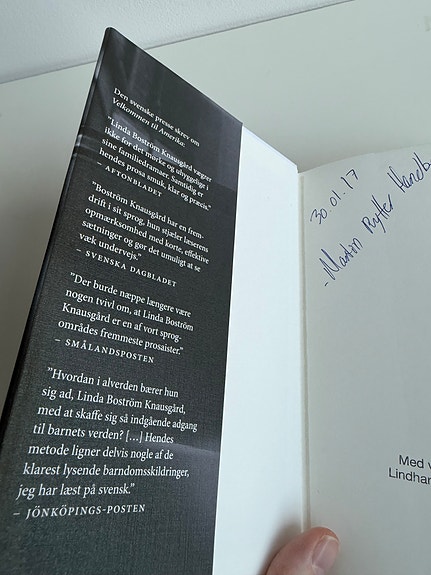 Den svenske presse skrev om
Velkommen til Amerika:
"Linda Boström Knausgård vægrer
ikke for det mørke og uhyggelige i
sine familiedramaer. Samtidig er
hendes prosa smuk, klar og præcis."
– AFTONBLADET
"Boström Knausgård har en frem-
drift i sit sprog, hun stjæler læserens
opmærksomhed med korte, effektive
sætninger og gør det umuligt at se
væk undervejs."
– SVENSKA DAGBLADET
"Der burde næppe længere være
nogen tvivl om, at Linda Boström
Knausgård er en af vort sprog-
områdes fremmeste prosaister."
– SMÅLANDSPOSTEN
"Hvordan i alverden bærer hun
sig ad, Linda Boström Knausgård,
med at skaffe sig så indgående adgang
til barnets verden? [...] Hendes
metode ligner delvis nogle af de
klarest lysende barndomsskildringer,
jeg har læst på svensk."
– JÖNKÖPINGS-POSTEN
30.01.17
Med v
Lindhar